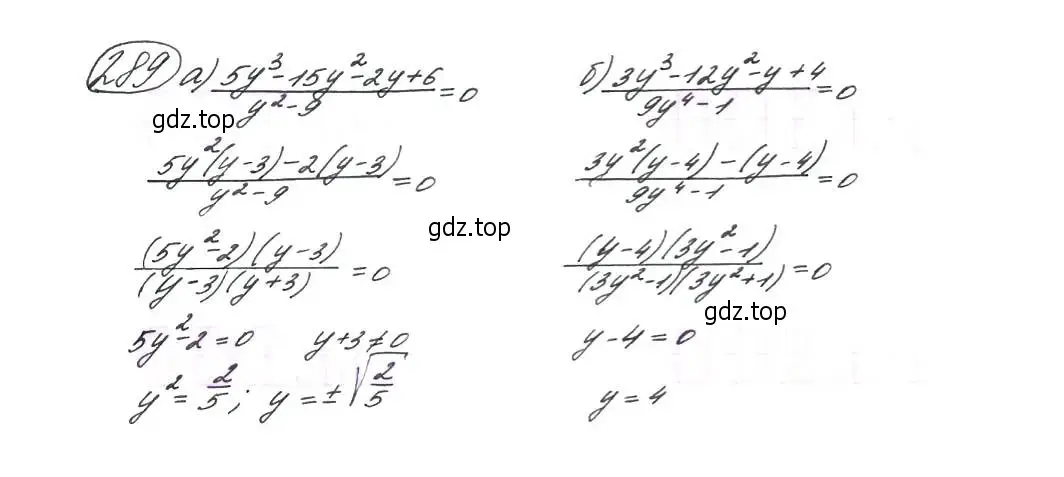 289 а) (5y³-15y²-2y+6)/(y²-9)=0
gdz.top
(5y²(y-3)-2(y-3))/(y²-9)=0
gdz.top
((5y²-2)(y-3))/((y-3)(y+3))=0
5y²-2=0 y+3≠0
y²=2/5; y=±√(2/5)
б) (3y³-12y²-y+4)/(9y⁴-1)=0
(3y²(y-4)-(y-4))/(9y⁴-1)=0
((y-4)(3y²-1))/((3y²-1)(3y²+1))=0
gdz.top
y-4=0
y=4